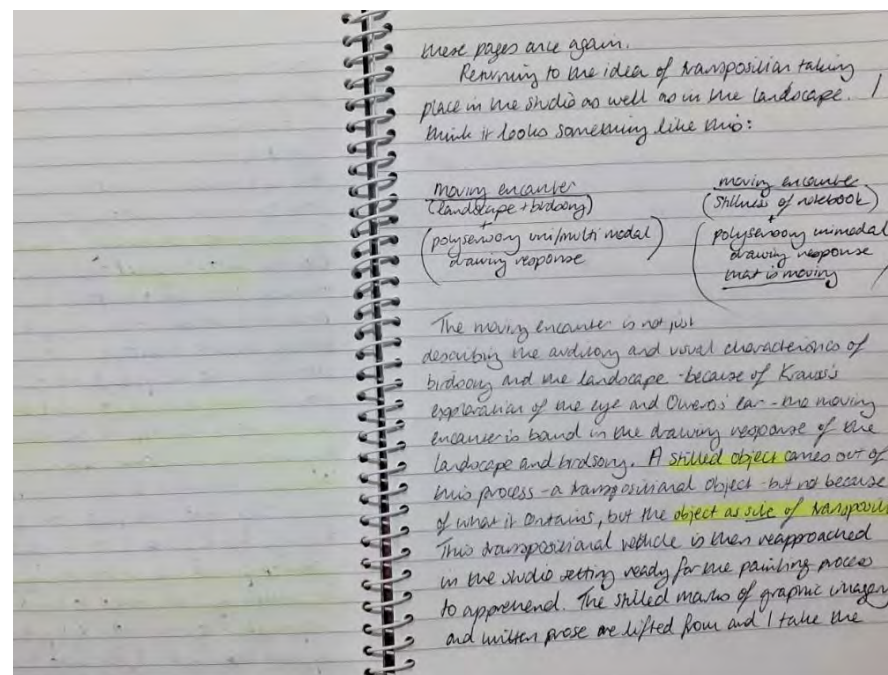 these pages once again.
Returning to the idea of transposition taking
place in the studio as well as in the landscape. I
think it looks something like this:
moving encounter
(landscape + birdsong)
+
(polysensory uni/multi modal)
drawing response
moving encounter
(stillness of notebook)
+
(polysensory unimodal
drawing response
that is moving)
The moving encounter is not just
describing the auditory and visual characteristics of
birdsong and the landscape - because of Krauss's
exploration of the eye and Oliveros' ear - the moving
encounter is bound in the drawing response of the
landscape and birdsong. A stilled object comes out of
this process - a transpositional object - but not because
of what it contains, but the object as site of
This transpositional vehicle is then reapproached
in the studio setting ready for the painting process
to apprehend. The stilled marks of graphic imagery
and written prose are lifted from and I take the